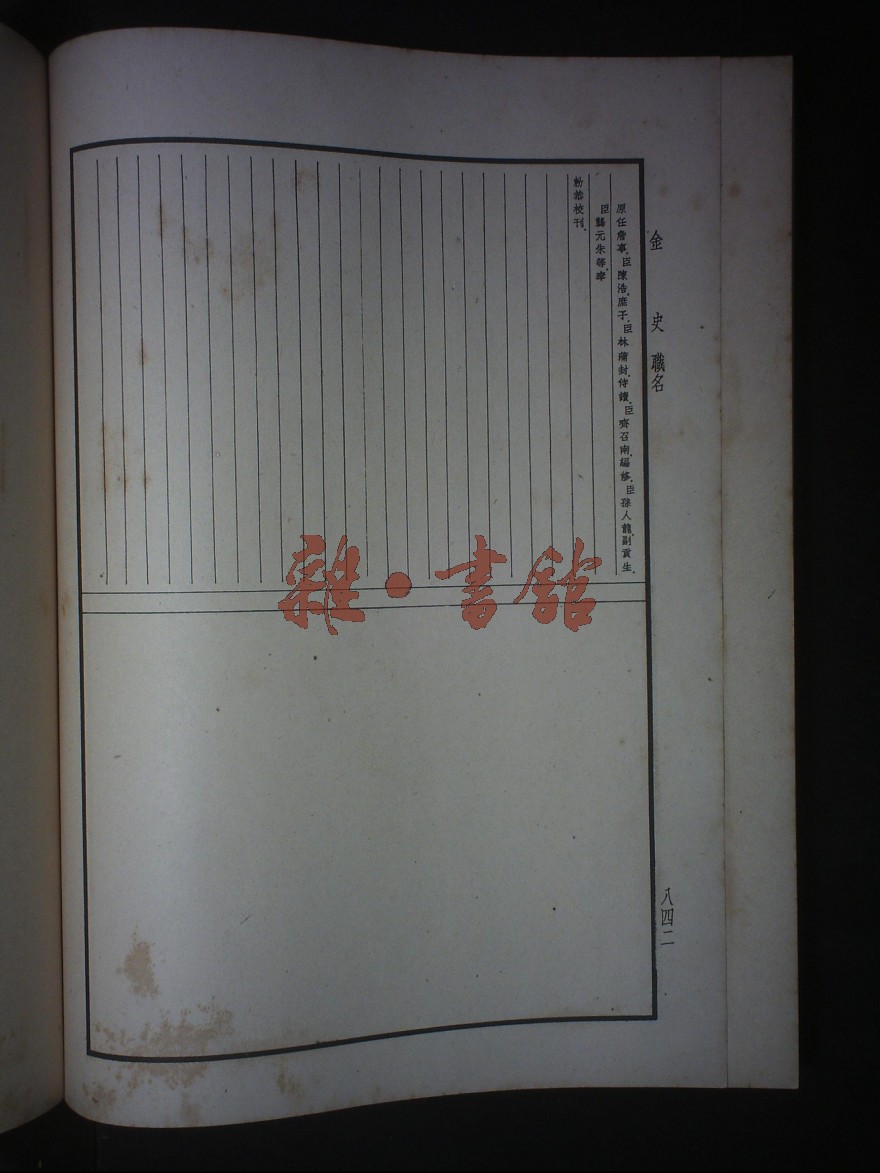 金史 職名
原任詹事臣陳浩庶子臣林蒲封侍讀臣齊召南編修臣孫人龍副貢生
臣龔元朱等奉
勅恭校刊
雜·書館
八四二